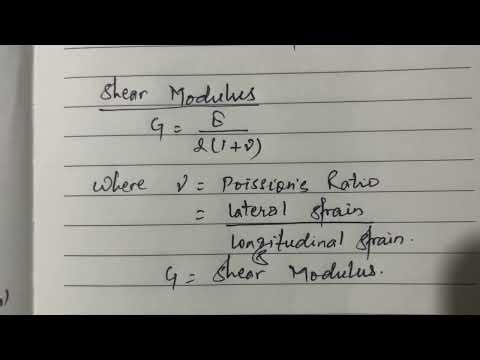 Shear Modulus
G = E / 2(1+ν)
where ν = Poission's Ratio
= lateral strain / longitudinal strain.
G = Shear Modulus.